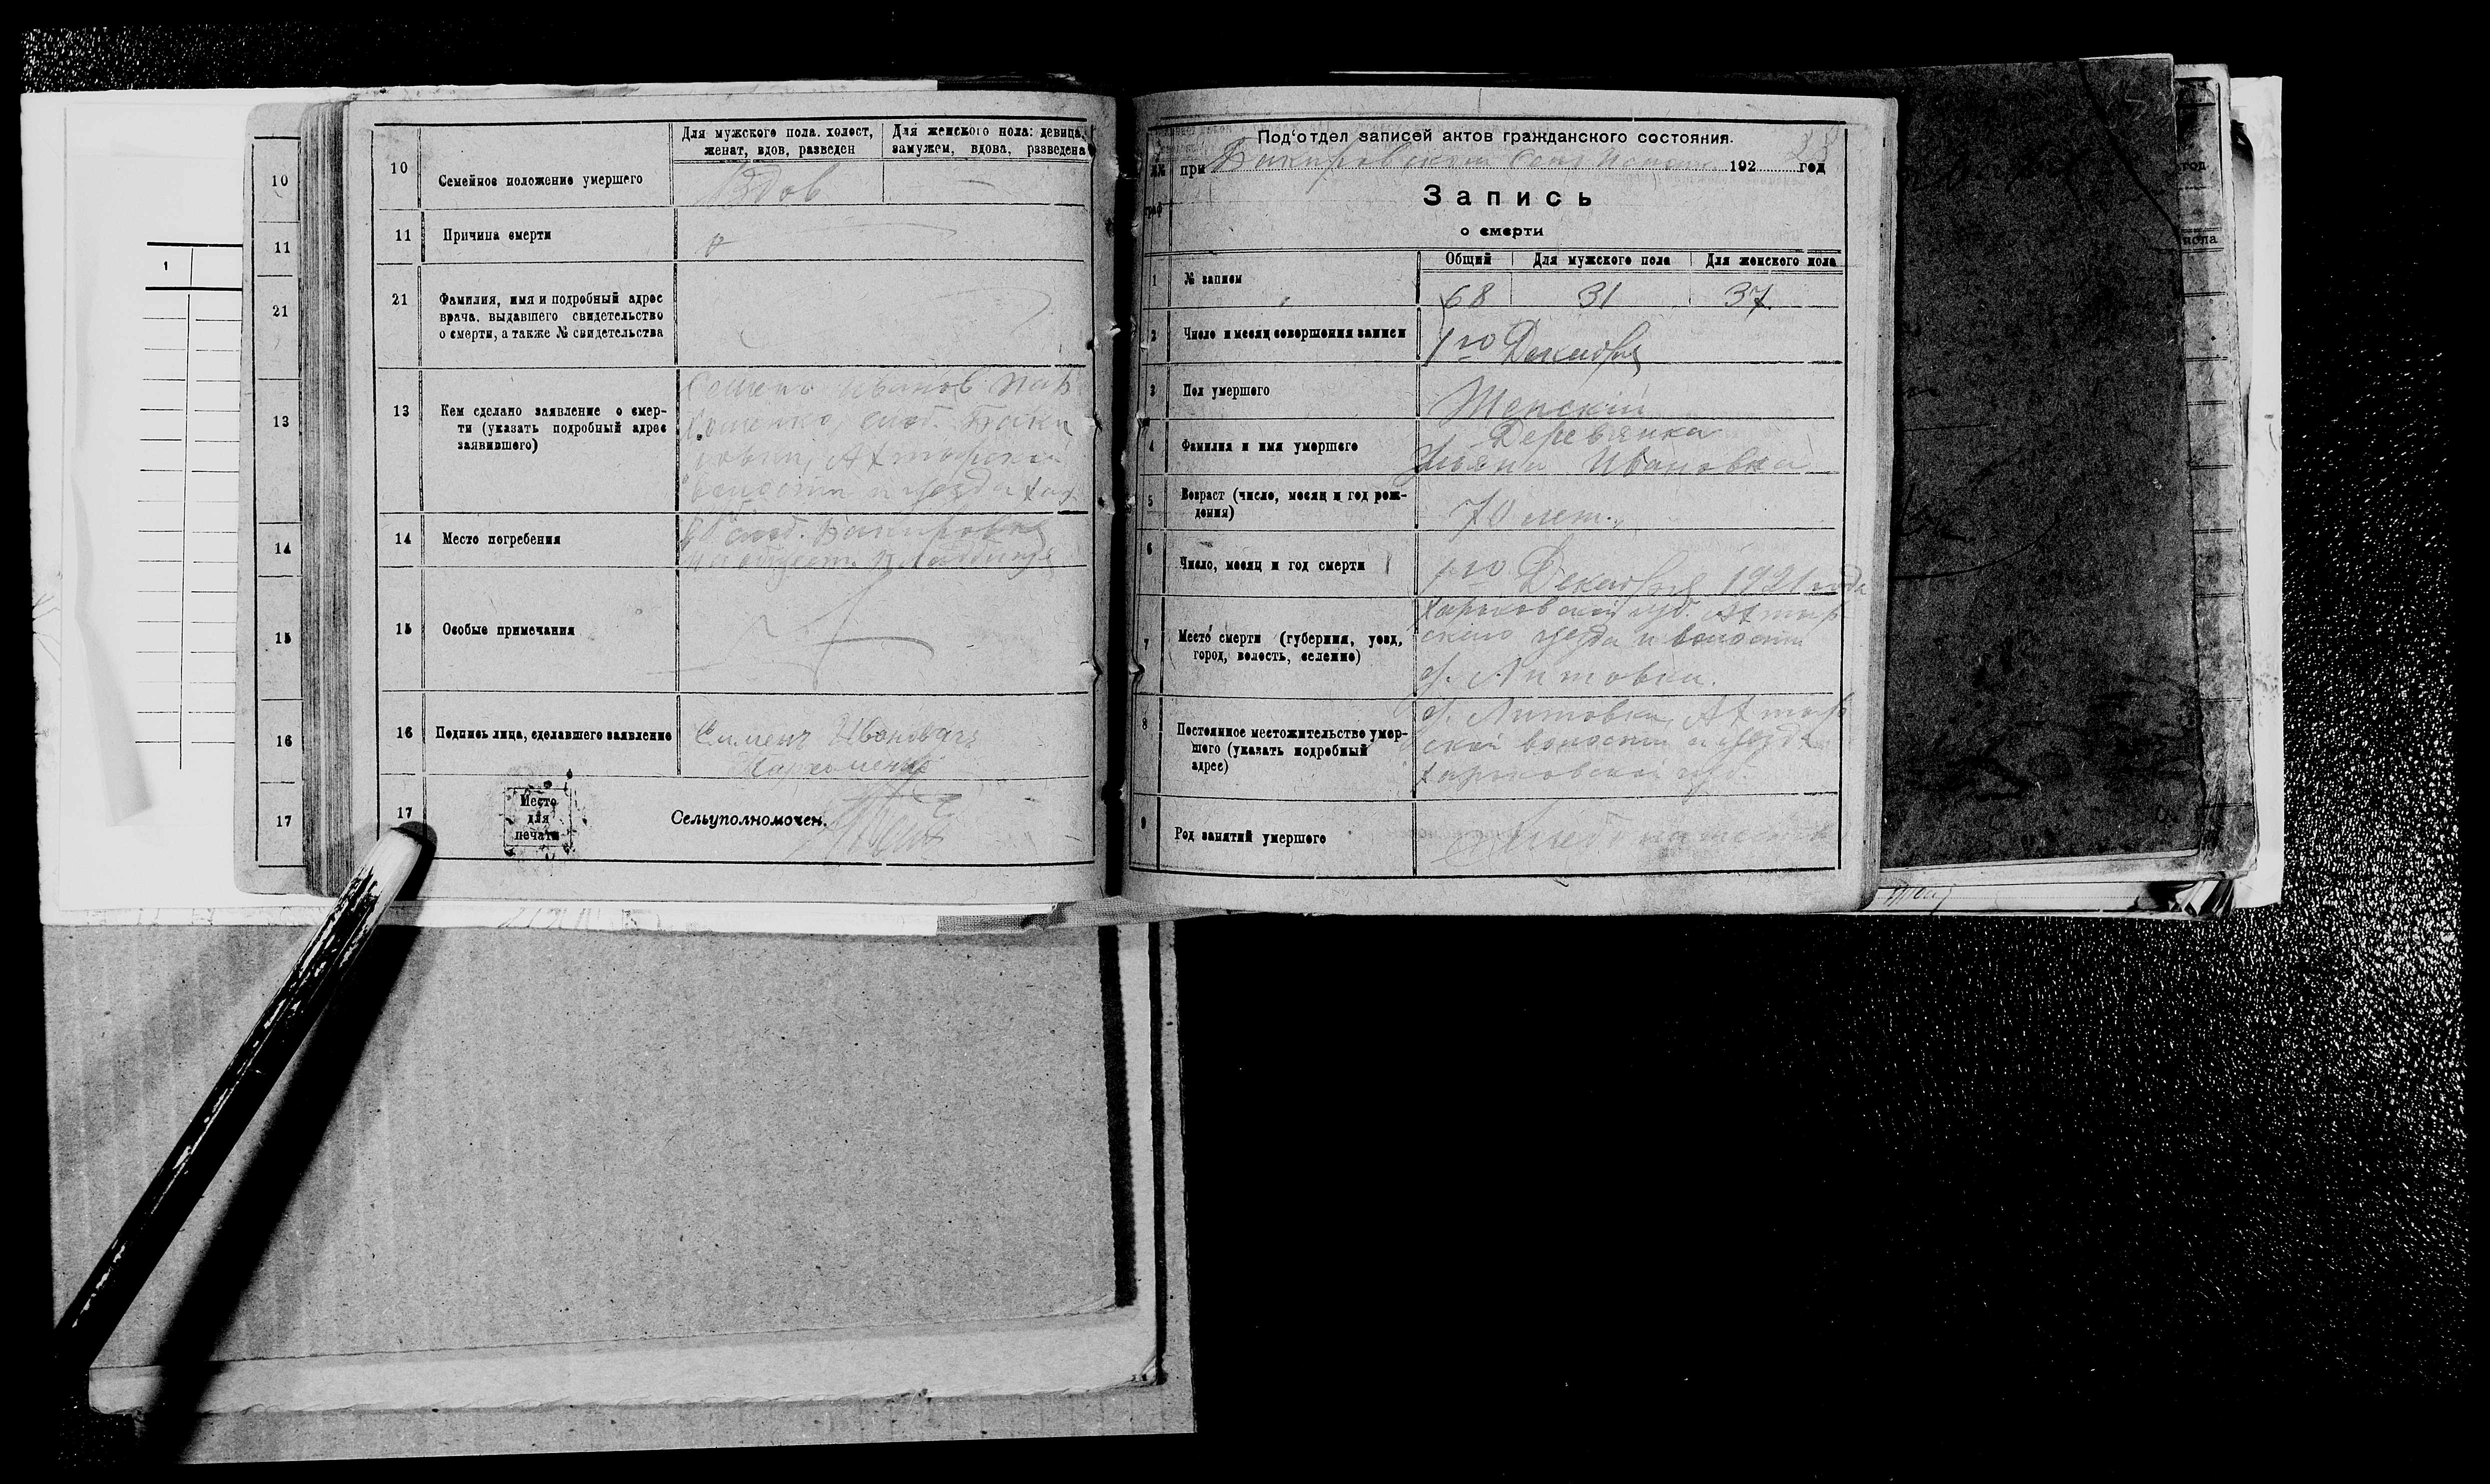 10
11
21
13
14
15
16
17
1
10
Семейное положение умершего
Для мужского пола. холост,
женат, вдов, разведен
Для женского пола: девица,
замужем, вдова, разведена
Вдов
—
11
Причина смерти
21
Фамилия, имя и подробный адрес
врача, выдавшего свидетельство
о смерти, а также № свидетельства
13
Кем сделано заявление о смер-
ти (указать подробный адрес
заявившего)
Семено Иванов Пар
хоменко, слод. Баки
ровки, Ахтырской
волости и уезда Хар
14
Место погребения
слод. Бакировка
на общест. Кладбище
15
Особые примечания
16
Подпись лица, сделавшего заявление
Семенъ Ивановичъ
Пархоменко
17
Место
для
печати
Сельуполномочен.
Под'отдел записей актов гражданского состояния.
№№
при Бакировском 192 год
граф
Запись
о смерти
1
№ записи
Общий
Для мужского пола
Для женского пола
68
31
37
2
Число и месяц совершения записи
1го Декабря
3
Пол умершего
Женский
4
Фамилия и имя умершего
Деревянка
Ульяна Ивановна
5
Возраст (число, месяц и год рож-
дения)
70 лет.
6
Число, месяц и год смерти
1го Декабря 1921 года
7
Место смерти (губерния, уезд,
город, волость, селение)
Харьковской губ Ахтыр
скаго уезда и волости
д. Литовки.
8
Постоянное местожительство умер-
шего (указать подробный
адрес)
д. Литовка, Ахтыр
ской волости и уезда
Харьковской губ.
9
Род занятий умершего
год
пола